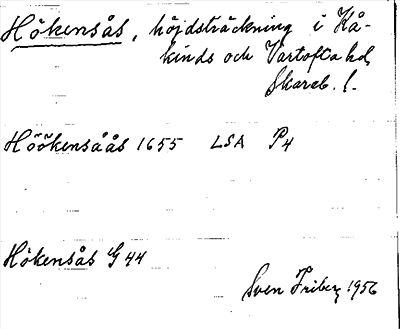 Hökensås, höjdsträckning i Kå-
kinds och Vartofta hd,
Skarab. l.
Höökensåås 1655 LSA P4
Hökensås G 44
Sven Friberg 1956